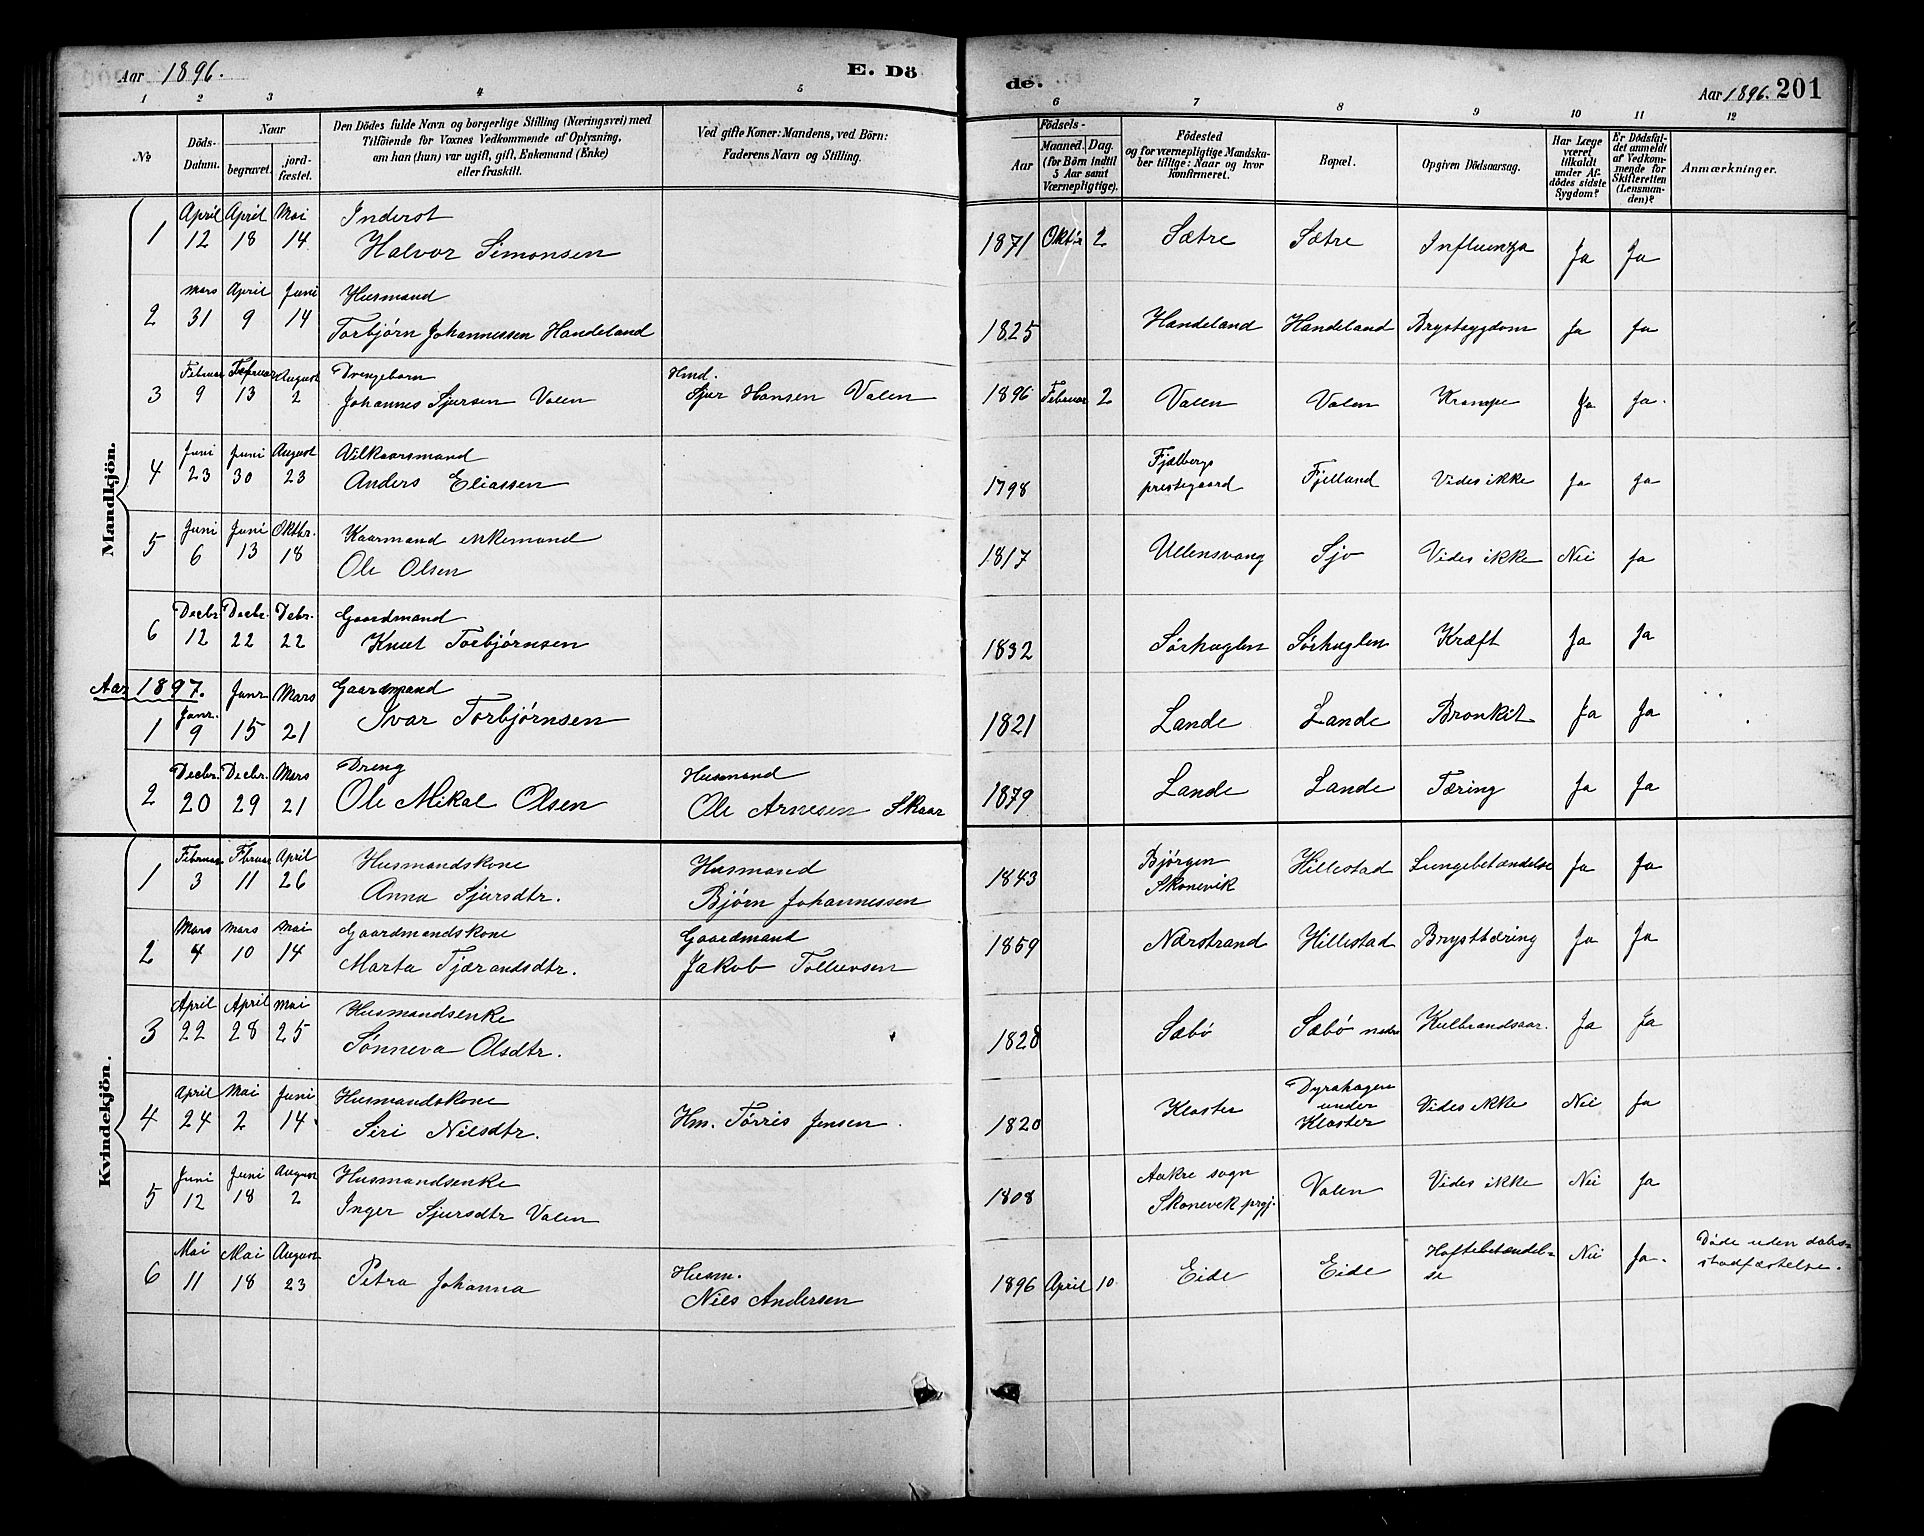 Aar 1896. E. Dö de. Aar 1896. 201
1 2 3 4 5 6 7 8 9 10 11 12
No
Döds-Datum.
Naar
begravet.
jord-fæstet.
Den Dödes fulde Navn og borgerlige Stilling (Næringsvei) med
Tilföiende for Voxnes Vedkommende af Oplysning,
om han (hun) var ugift, gift, Enkemand (Enke)
eller fraskilt.
Ved gifte Koner: Mandens, ved Börn:
Faderens Navn og Stilling.
Födsels-
Aar
Maaned. Dag.
(for Börn indtil
5 Aar samt
Værnepligtige).
Födested
og for værnepligtige Mandska-
ber tillige: Naar og hvor
konfirmeret.
Bopæl.
Opgiven Dödsaarsag.
Har Læge
været
tilkaldt
under Af-
dödes sidste
Sygdom?
Er Dödsfal-
det anmeldt
af Vedkom-
mende for
Skifteretten
(Lensman-
den)?
Anmærkninger.
Mandkjön.
April April Mai Inderst
1 12 18 14 Halvor Simonsen 1871 Oktbr 2 Sætre Sætre Influenza Ja Ja
Mars April Juni Husmand
2 31 9 14 Torbjørn Johannessen Handeland 1825 Handeland Handeland Brystsygdom Ja Ja
Februar Februar August Drengebarn Hmd.
3 9 13 2 Johannes Sjursen Valen Sjur Hansen Valen 1896 Februar 2 Valen Valen Krampe Ja Ja.
Juni Juni August Vilkaarsmand Fjælbergs
4 23 30 23 Anders Eliassen 1798 prestegaard Fjelland Vides ikke Ja Ja
Juni Juni Oktbr. Kaarmand enkemand
5 6 13 18 Ole Olsen 1817 Ullensvang Sjo Vides ikke Nei Ja
Decbr. Decbr. Debr. Gaardmand
6 12 22 22 Knut Torbjørnsen 1832 Sørhuglen Sørhuglen Kræft Ja Ja
Aar 1897. Janr Mars Gaardmand
Janr.
1 9 15 21 Ivar Torbjørnsen 1821 Lande Lande Bronkit Ja Ja
Decbr. Decbr. Mars Dreng Husmand
2 20 29 21 Ole Mikal Olsen Ole Arnesen Skaar 1879 Lande Lande Tæring Ja Ja
Kvindekjön.
Februar Fbruar April Husmandskone Husmand Bjørgen
1 3 11 26 Anna Sjursdtr. Bjørn Johannessen 1843 Skonevik Hillestad Lungebetændelse Ja Ja
Mars Mars Mai Gaardmandskone Gaardmand
2 4 10 14 Marta Tjærandsdtr. Jakob Tollevsen 1859 Nærstrand Hillestad Brysttæring Ja Ja
April April Mai Husmandsenke
3 22 28 25 Sønneva Olsdtr. 1828 Sæbø Sæbø nedre Kulbrandsaar. Ja Ja
April Mai Juni Husmandskone Dyrahagen
4 24 2 14. Siri Nilsdtr. Hm. Tørris Jensen. 1820 Kloster under Vides ikke Nei Ja
Kloster
Juni Juni August Husmandsenke Aakre sogn
5 12 18 2 Inger Sjursdtr Valen 1808 Skonevik prgj. Valen Vides ikke Nei Ja
Mai Mai August Husm. Hoftebetændel-
6 11 18 23 Petra Johanna Nils Andersen 1896 April 10 Eide Eide se Nei Ja. Døde uden daabs-
stadfæstelse.